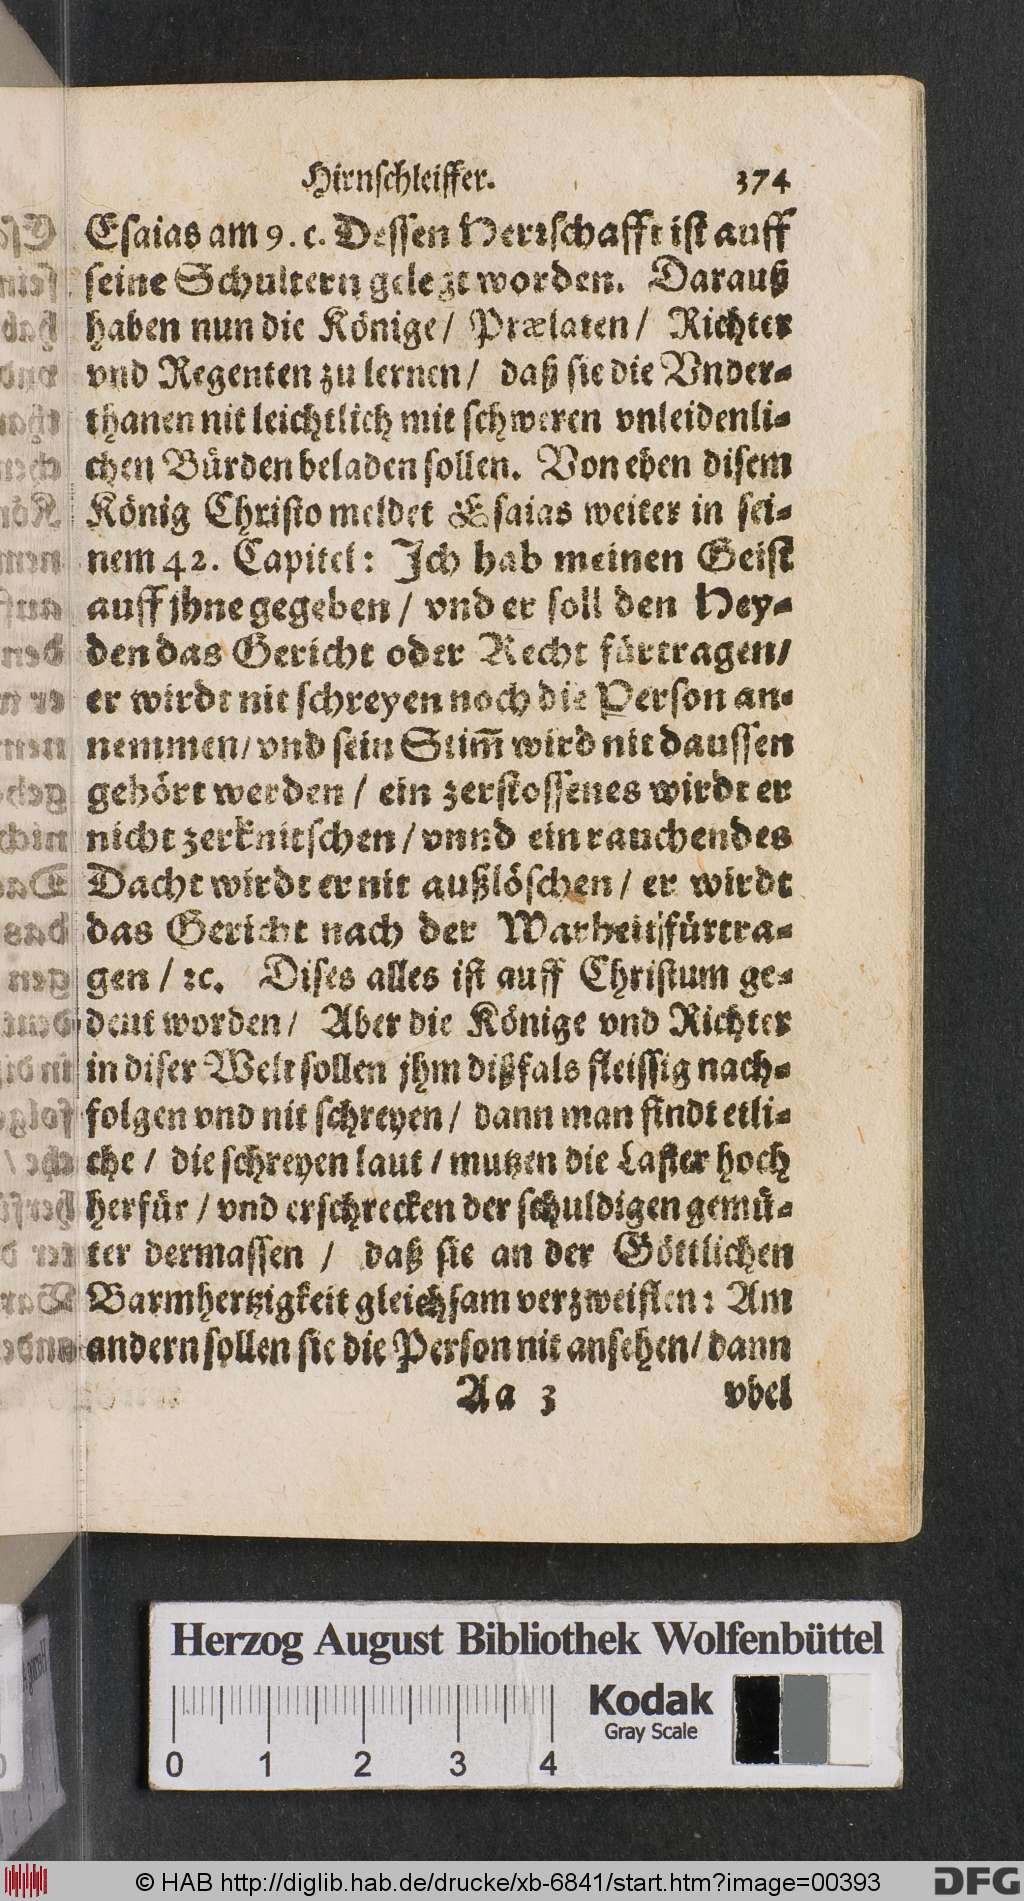 Hirnschleiffer. 374
Esaias am 9. c. Dessen Herrschafft ist auff
seine Schultern gelegt worden. Darauß
haben nun die Könige/ Prælaten/ Richter
vnd Regenten zu lernen/ daß sie die Vnder-
thanen nit leichtlich mit schweren vnleidenli-
chen Bürden beladen sollen. Von eben disem
König Christo meldet Esaias weiter in sei-
nem 42. Capitel: Ich hab meinen Geist
auff jhne gegeben/ vnd er soll den Hey-
den das Gericht oder Recht fürtragen/
er wirdt nit schreyen noch die Person an-
nemmen/ vnd sein Stim̃ wird nit daussen
gehört werden/ ein zerstossenes wirdt er
nicht zerknitschen/ vnnd ein rauchendes
Dacht wirdt er nit außlöschen/ er wirdt
das Gericht nach der Warheit fürtra-
gen/ ꝛc. Dises alles ist auff Christum ge-
deut worden/ Aber die Könige vnd Richter
in diser Welt sollen jhm dißfals fleissig nach-
folgen vnd nit schreyen/ dann man findt etli-
che/ die schreyen laut/ mutzen die Laster hoch
herfür/ vnd erschrecken der schuldigen gemü-
ter dermassen/ daß sie an der Göttlichen
Barmhertzigkeit gleichsam verzweiflen: Am
andern sollen sie die Person nit ansehen/ dann
Aa 3 vbel
Herzog August Bibliothek Wolfenbüttel
Kodak
Gray Scale
0 1 2 3 4
© HAB http://diglib.hab.de/drucke/xb-6841/start.htm?image=00393
DFG